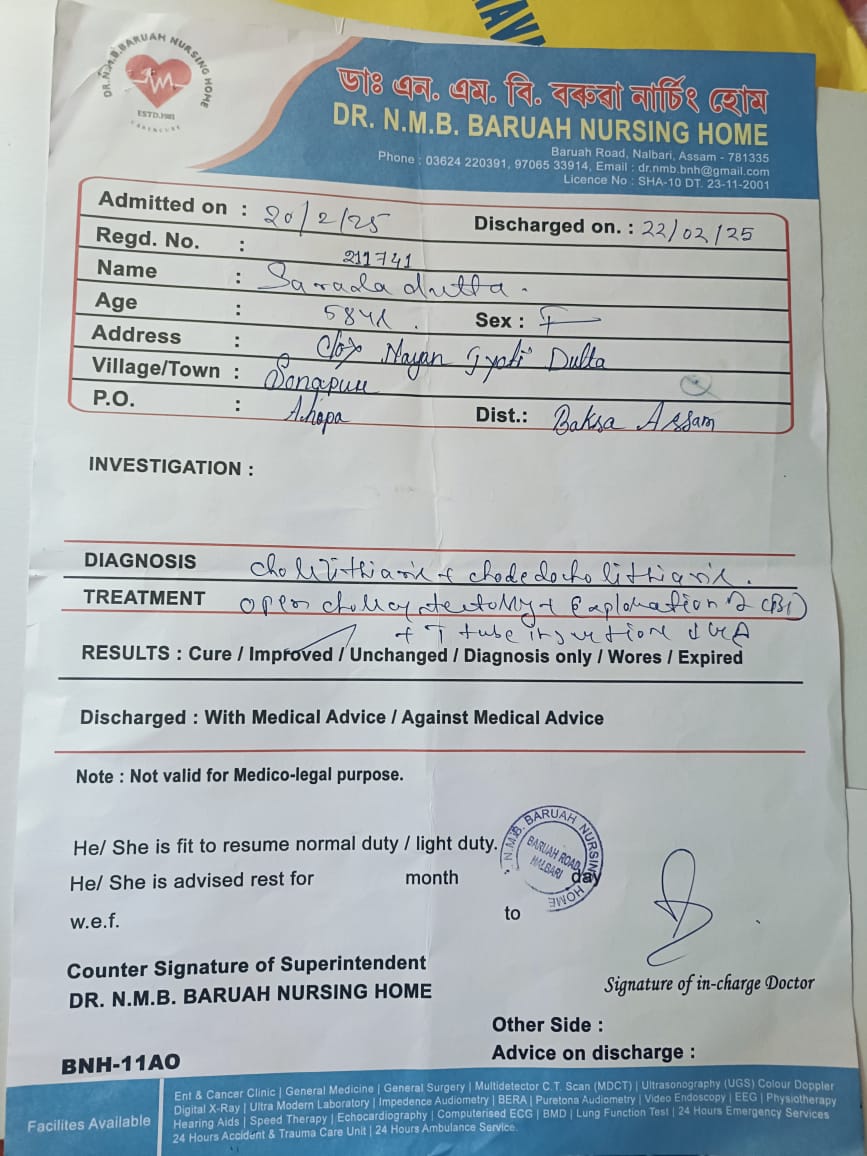 NAYA
DR. N.M.B. BARUAH NURSING HOME
ESTD.1981
ডাঃ এন. এম. বি. বৰুৱা নাৰ্চিং হোম
DR. N.M.B. BARUAH NURSING HOME
Baruah Road, Nalbari, Assam - 781335
Phone : 03624 220391, 97065 33914, Email : dr.nmb.bnh@gmail.com
Licence No : SHA-10 DT. 23-11-2001
Admitted on : 20/2/25 Discharged on. : 22/02/25
Regd. No. : 211741
Name : Sarada dutta.
Age : 58 Sex : F
Address : C/o, Nayan Gyoti Dutta
Village/Town : Sonapur
P.O. : Ahopa Dist.: Baksa Assam
INVESTIGATION :
DIAGNOSIS cholilithiasis + choledocholithiasis.
TREATMENT open cholecystectomy + Exploration of CBD
+ T tube insertion
RESULTS : Cure / Improved / Unchanged / Diagnosis only / Wores / Expired
Discharged : With Medical Advice / Against Medical Advice
Note : Not valid for Medico-legal purpose.
He/ She is fit to resume normal duty / light duty.
He/ She is advised rest for month day
w.e.f. to
N.M.B. BARUAH NURSING HOME
BARUAH ROAD
NALBARI
Counter Signature of Superintendent
DR. N.M.B. BARUAH NURSING HOME
Signature of in-charge Doctor
Other Side :
Advice on discharge :
BNH-11AO
Facilites Available
Ent & Cancer Clinic | General Medicine | General Surgery | Multidetector C.T. Scan (MDCT) | Ultrasonography (UGS) Colour Doppler
Digital X-Ray | Ultra Modern Laboratory | Impedence Audiometry | BERA | Puretona Audiometry | Video Endoscopy | EEG | Physiotherapy
Hearing Aids | Speed Therapy | Echocardiography | Computerised ECG | BMD | Lung Function Test | 24 Hours Emergency Services
24 Hours Accident & Trauma Care Unit | 24 Hours Ambulance Service.